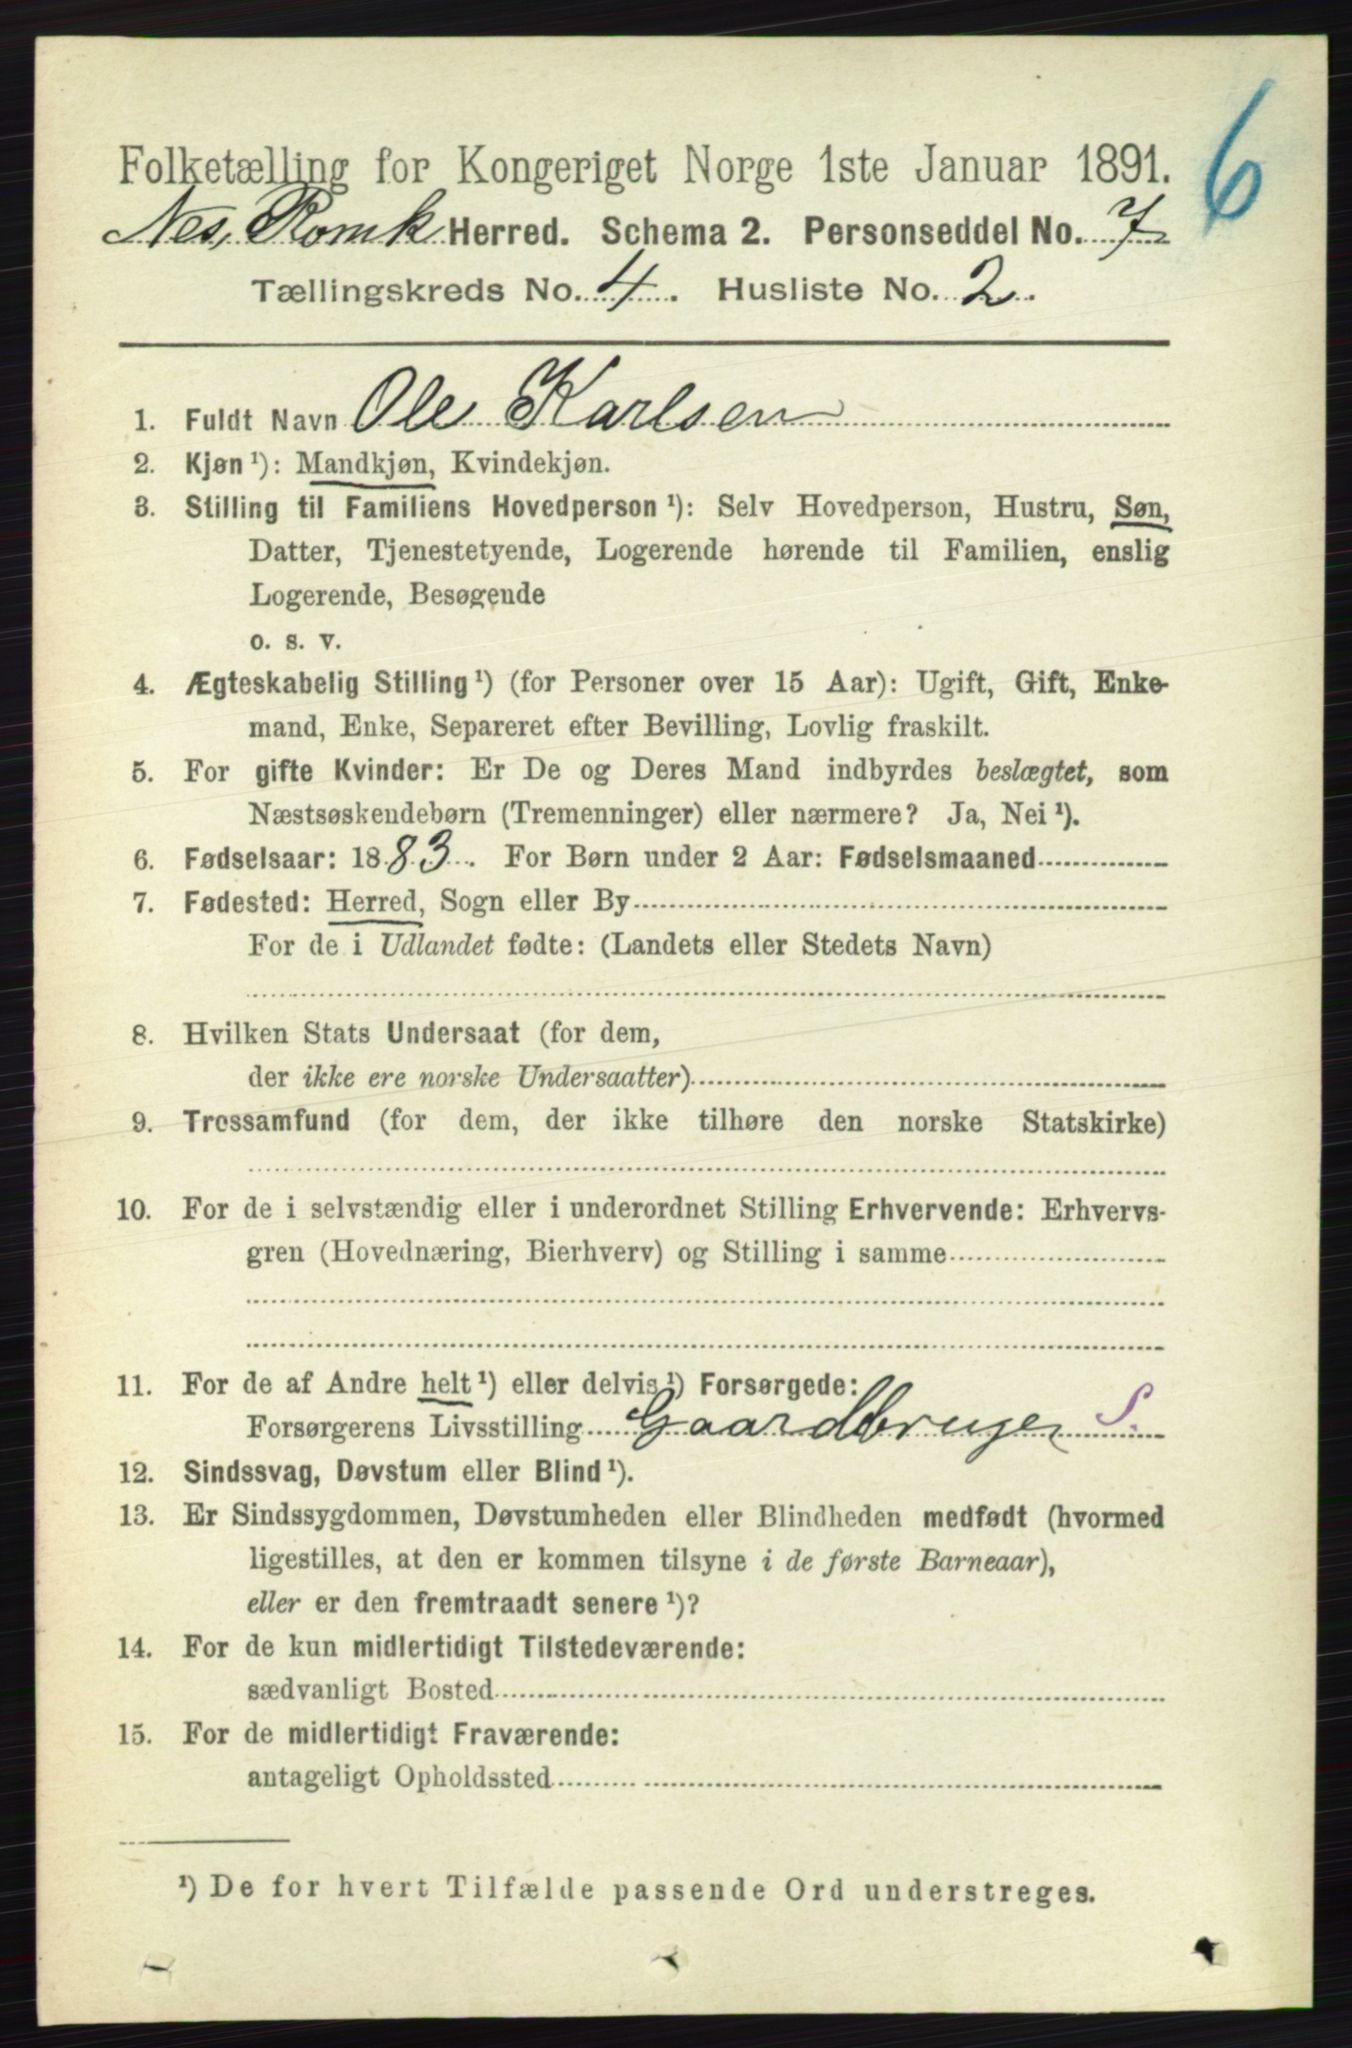 6
Folketælling for Kongeriget Norge 1ste Januar 1891.
Nes, Romk Herred. Schema 2. Personseddel No. 7
Tællingskreds No. 4. Husliste No. 2.
1. Fuldt Navn Ole Karlsen
2. Kjøn ¹): Mandkjøn, Kvindekjøn.
3. Stilling til Familiens Hovedperson ¹): Selv Hovedperson, Hustru, Søn,
Datter, Tjenestetyende, Logerende hørende til Familien, enslig
Logerende, Besøgende
o. s. v.
4. Ægteskabelig Stilling ¹) (for Personer over 15 Aar): Ugift, Gift, Enke-
mand, Enke, Separeret efter Bevilling, Lovlig fraskilt.
5. For gifte Kvinder: Er De og Deres Mand indbyrdes beslægtet, som
Næstsøskendebørn (Tremenninger) eller nærmere? Ja, Nei ¹).
6. Fødselsaar: 1883. For Børn under 2 Aar: Fødselsmaaned
7. Fødested: Herred, Sogn eller By
For de i Udlandet fødte: (Landets eller Stedets Navn)
8. Hvilken Stats Undersaat (for dem,
der ikke ere norske Undersaatter)
9. Trossamfund (for dem, der ikke tilhøre den norske Statskirke)
10. For de i selvstændig eller i underordnet Stilling Erhvervende: Erhvervs-
gren (Hovednæring, Bierhverv) og Stilling i samme
11. For de af Andre helt ¹) eller delvis ¹) Forsørgede:
Forsørgerens Livsstilling Gaardbruger S.
12. Sindssvag, Døvstum eller Blind ¹).
13. Er Sindssygdommen, Døvstumheden eller Blindheden medfødt (hvormed
ligestilles, at den er kommen tilsyne i de første Barneaar),
eller er den fremtraadt senere ¹)?
14. For de kun midlertidigt Tilstedeværende:
sædvanligt Bosted
15. For de midlertidigt Fraværende:
antageligt Opholdssted
¹) De for hvert Tilfælde passende Ord understreges.